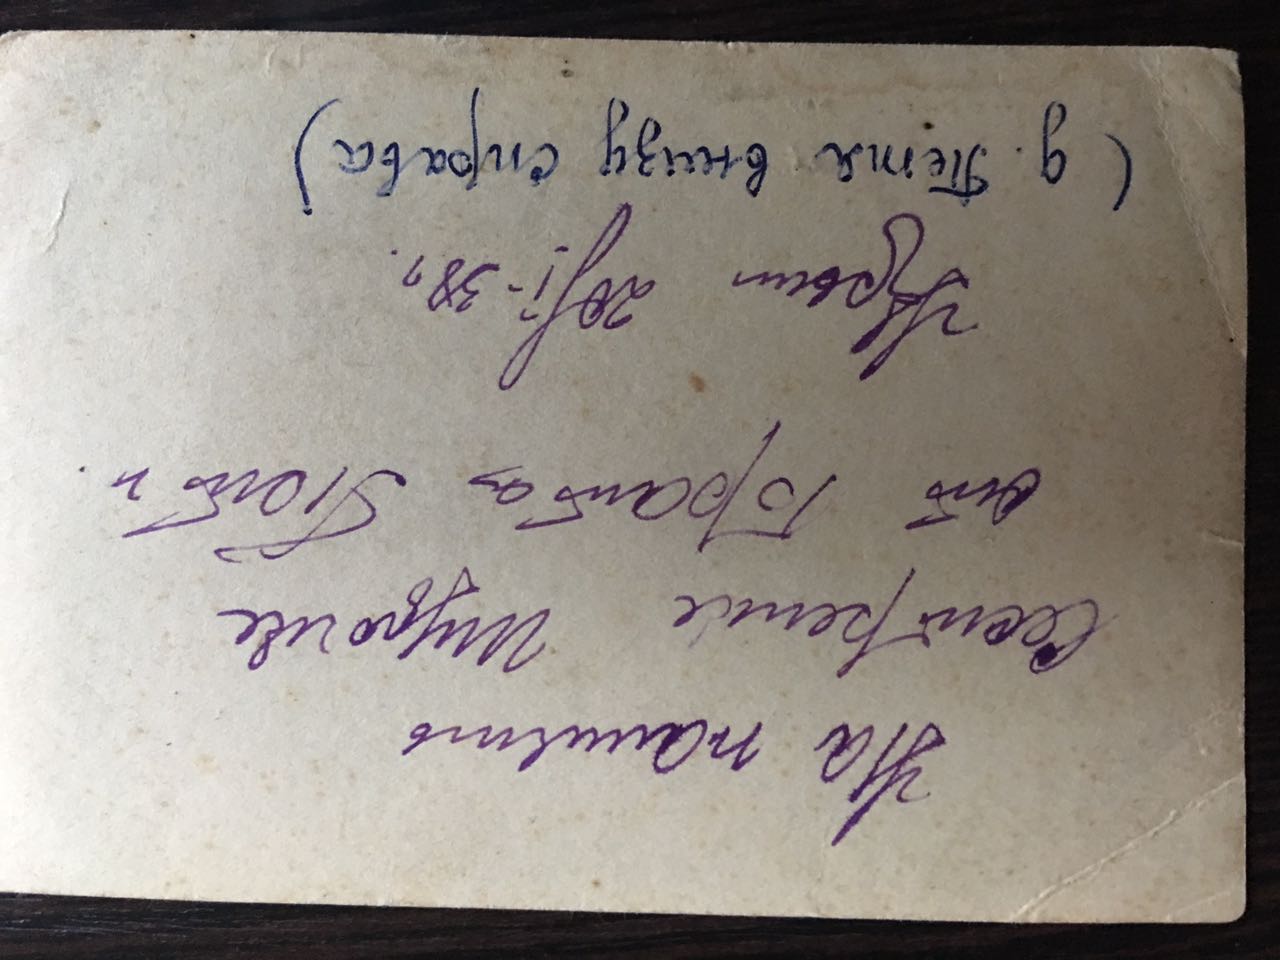 На память
Сестренке Шурочке
от Брата Пети.
20/I-38г.
(д. Петя внизу справа)